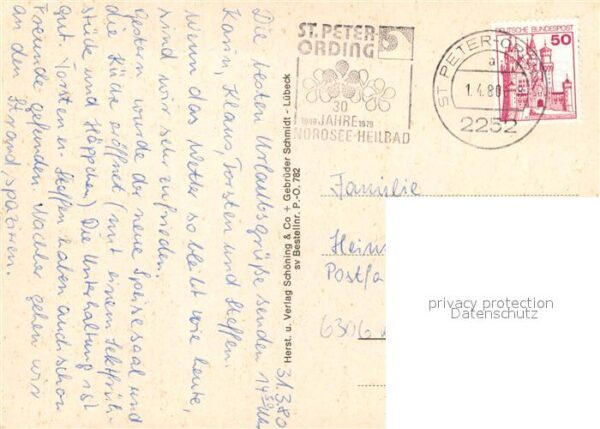 Die besten Urlaubsgrüße senden
Karin, Klaus, Torsten und Steffen.
Wenn das Wetter so bleibt wie heute,
sind wir sehr zufrieden.
Gestern wurde der neue Speisesaal und
die Küche eröffnet (mit einem Sektfrüh-
stück und Häppchen) Die Unterhaltung ist
gut. Torsten u. Steffen haben auch schon
Freunde gefunden. Nachher gehen wir
an den Strand, spazieren.
31.3.80
14 30 Uhr
Herst. u. Verlag Schöning & Co + Gebrüder Schmidt - Lübeck
sv Bestellnr. P.-O. 782
ST. PETER-
ORDING
30
1949 JAHRE 1979
NORDSEE-HEILBAD
ST PETER-ORD
a
1.4.80
2252
DEUTSCHE BUNDESPOST
50
Familie
Hein
Postfa
6306
privacy protection
Datenschutz